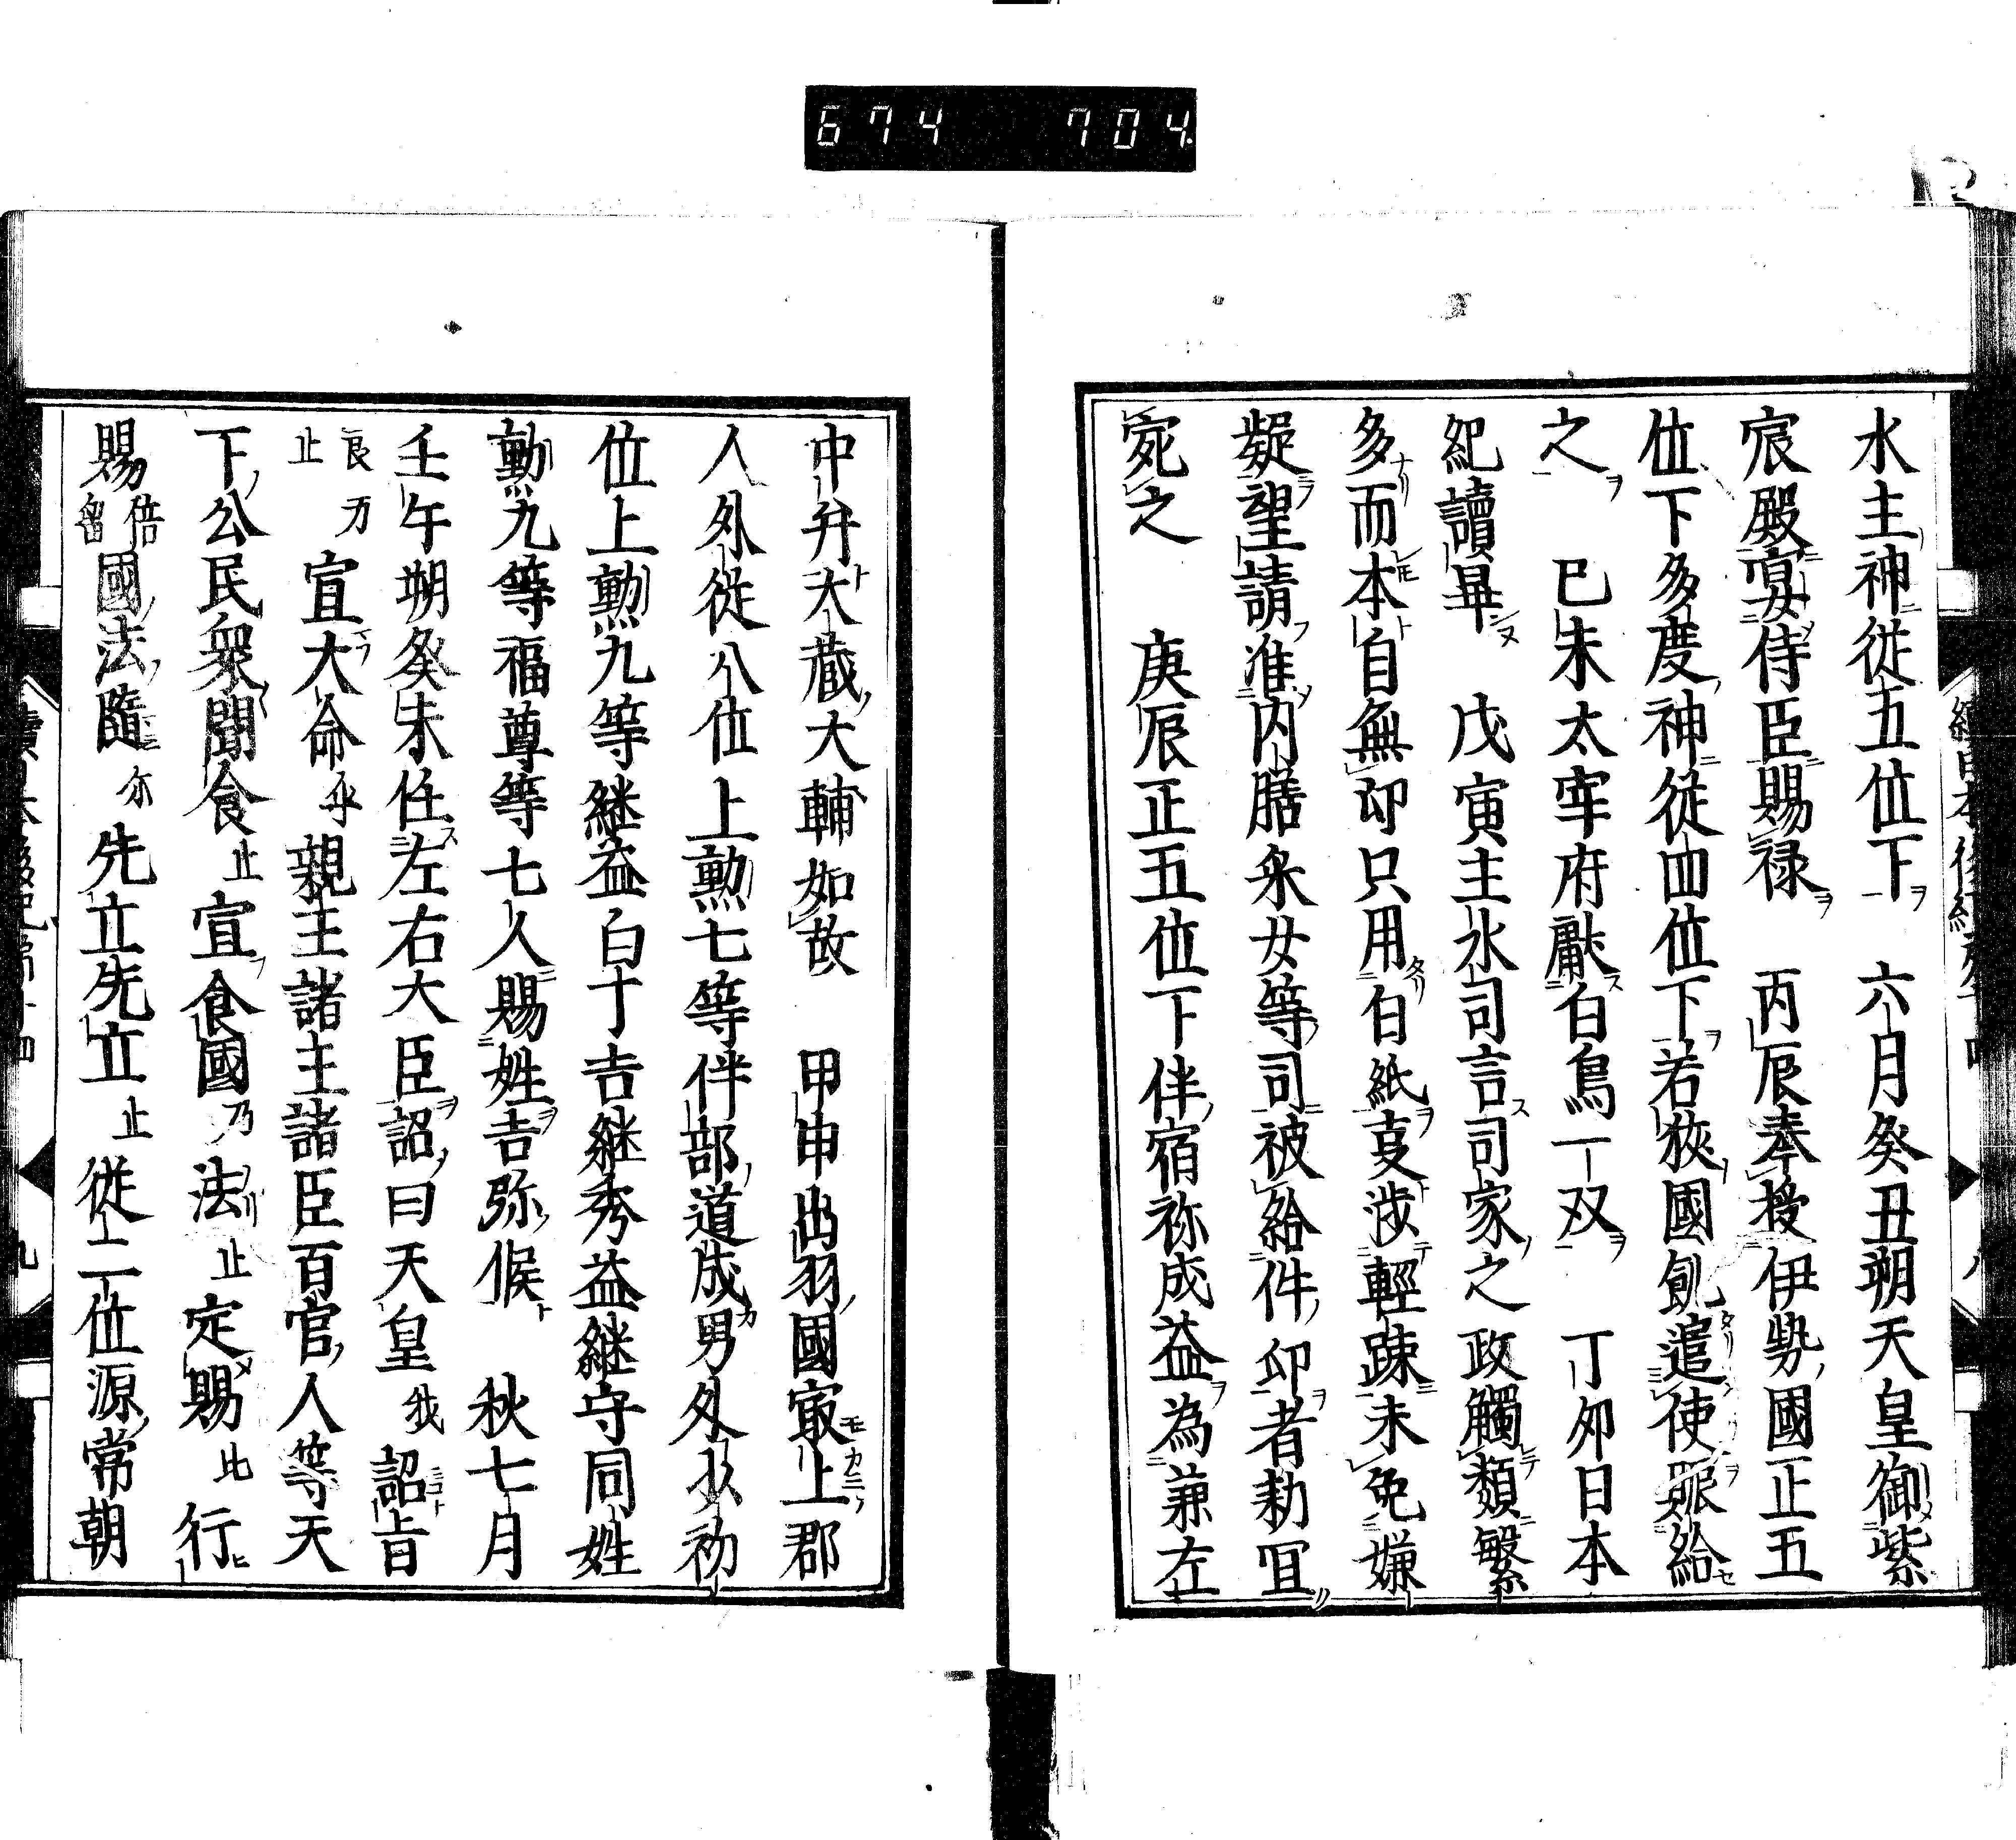 674 704
水主神従五位下 六月癸丑朔天皇御紫
宸殿宴侍臣賜禄 丙辰奉授伊勢國正五
位下多度神従四位下若狹國飢遣使賑給
之 己未太宰府獻白烏一双 丁卯日本
紀讀畢 戊寅主水司言司家之政觸類繁
多而本自無印只用白紙妄渉輕踈未免嫌
疑望請准内膳采女等司被給件印者勅冝
宛之 庚辰正五位下伴宿祢成益為兼左
中弁大蔵大輔如故 甲申出羽國㝡上郡
人外従八位上勲七等伴部道成男外少初
位上勲九等継益白丁吉継秀益継守同姓
勲九等福尊等七人賜姓吉弥候 秋七月
壬午朔癸未任左右大臣詔曰天皇我詔旨
良万止宣大命乎親王諸王諸臣百官人等天
下公民衆聞食止宣食國乃法止定賜比行
賜倍留國法隨尓先立先立止従二位源常朝